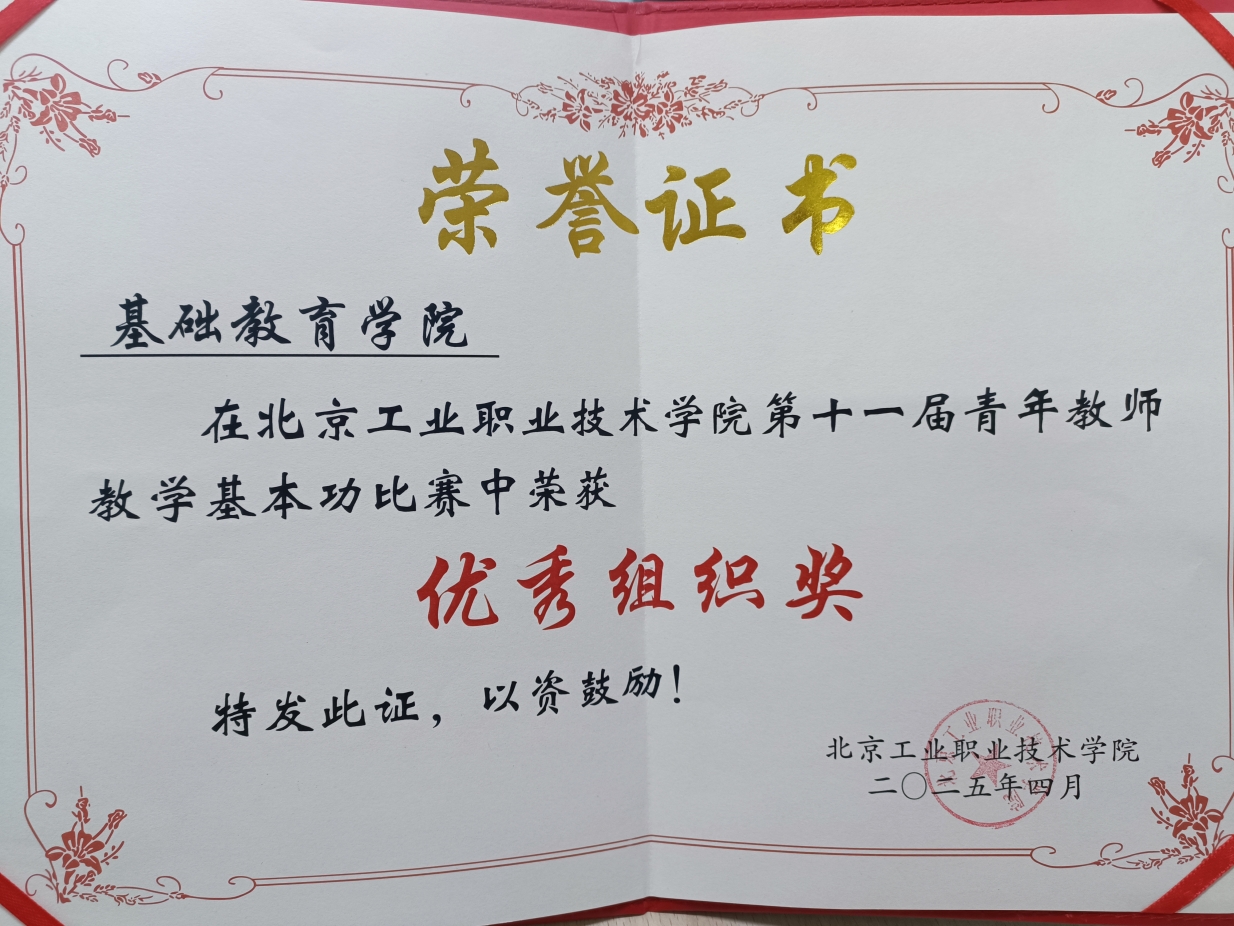 荣誉证书
基础教育学院
在北京工业职业技术学院第十一届青年教师
教学基本功比赛中荣获
优秀组织奖
特发此证，以资鼓励！
北京工业职业技术学院
二〇二五年四月
北京工业职业技术学院